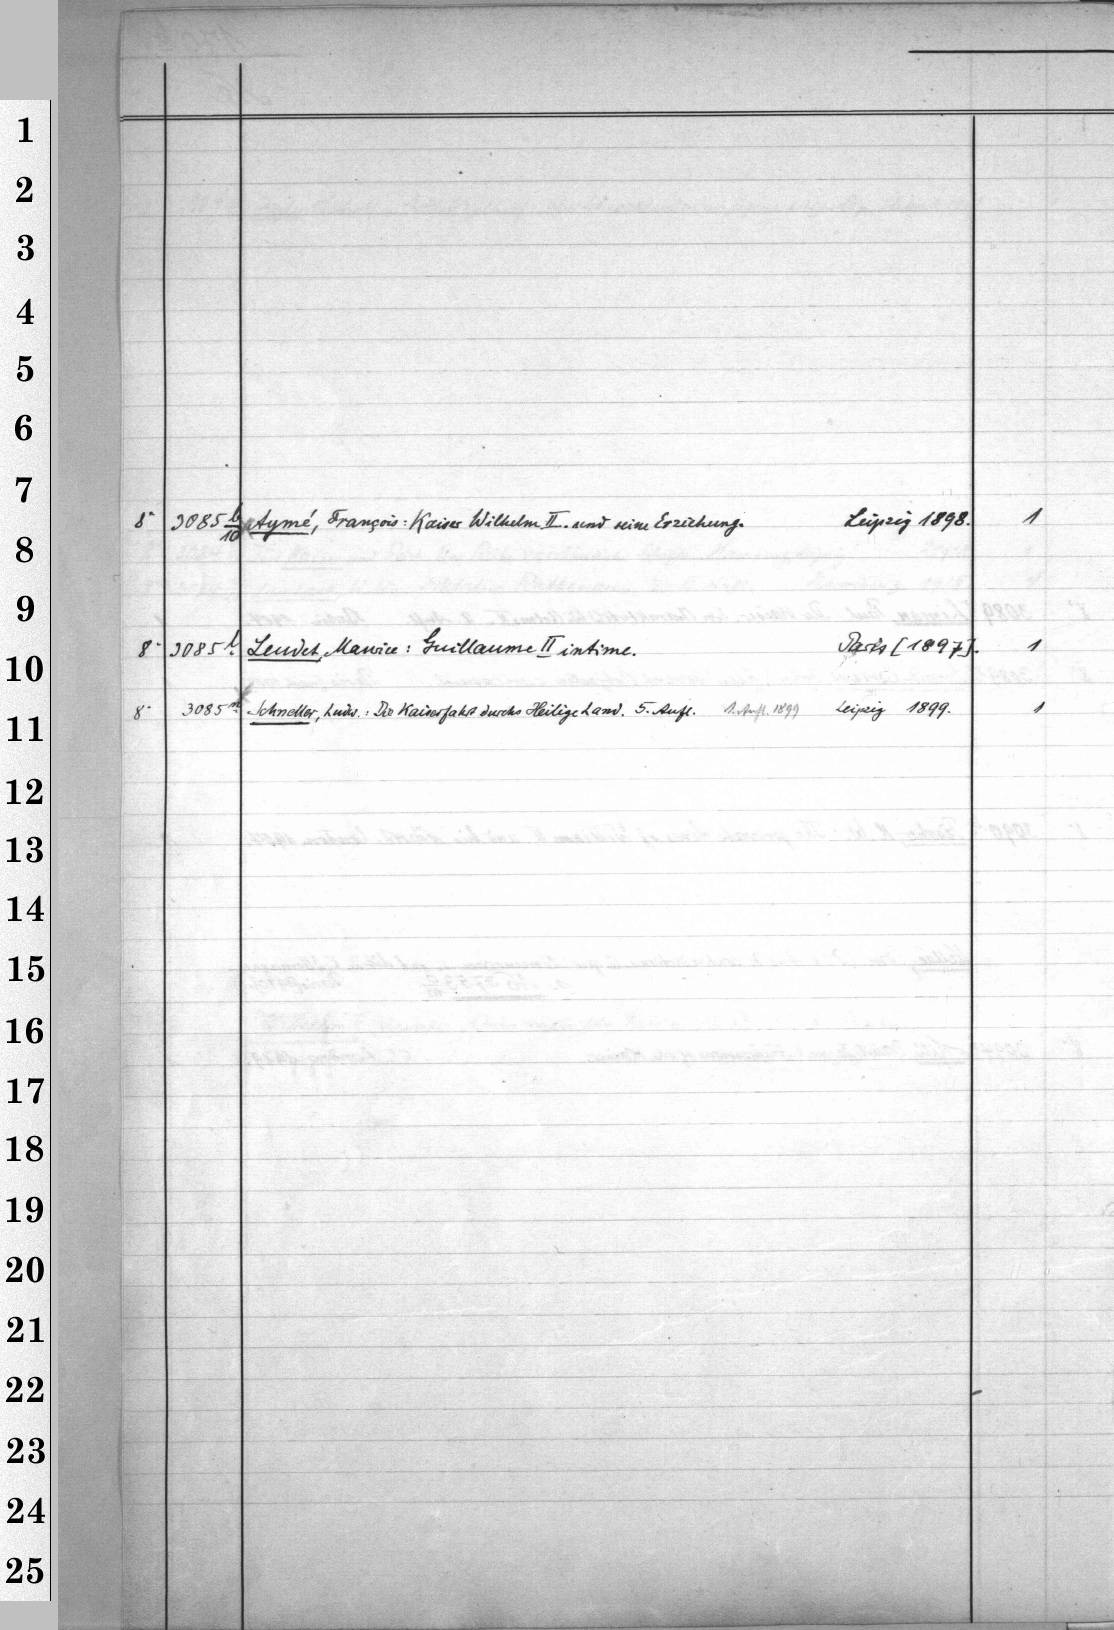 1
2
3
4
5
6
7
8° 3085 b/10 Aymé, François: Kaiser Wilhelm II. und seine Erziehung. Leipzig 1898. 1
8
9
8° 3085 l. Leudet, Maurice: Guillaume II intime. Paris [1897]. 1
10
8° 3085 m. Schneller, Ludw.: Die Kaiserfahrt durchs Heilige Land. 5. Aufl. 1. Aufl. 1899 Leipzig 1899. 1
11
12
13
14
15
16
17
18
19
20
21
22
23
24
25